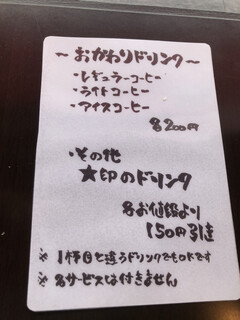 〜おかわりドリンク〜
・レギュラーコーヒー
・ライトコーヒー
・アイスコーヒー
各200円
・その他
★印のドリンク
各お値段より
150円引き
※1杯目と違うドリンクでもOKです
※各サービスは付きません